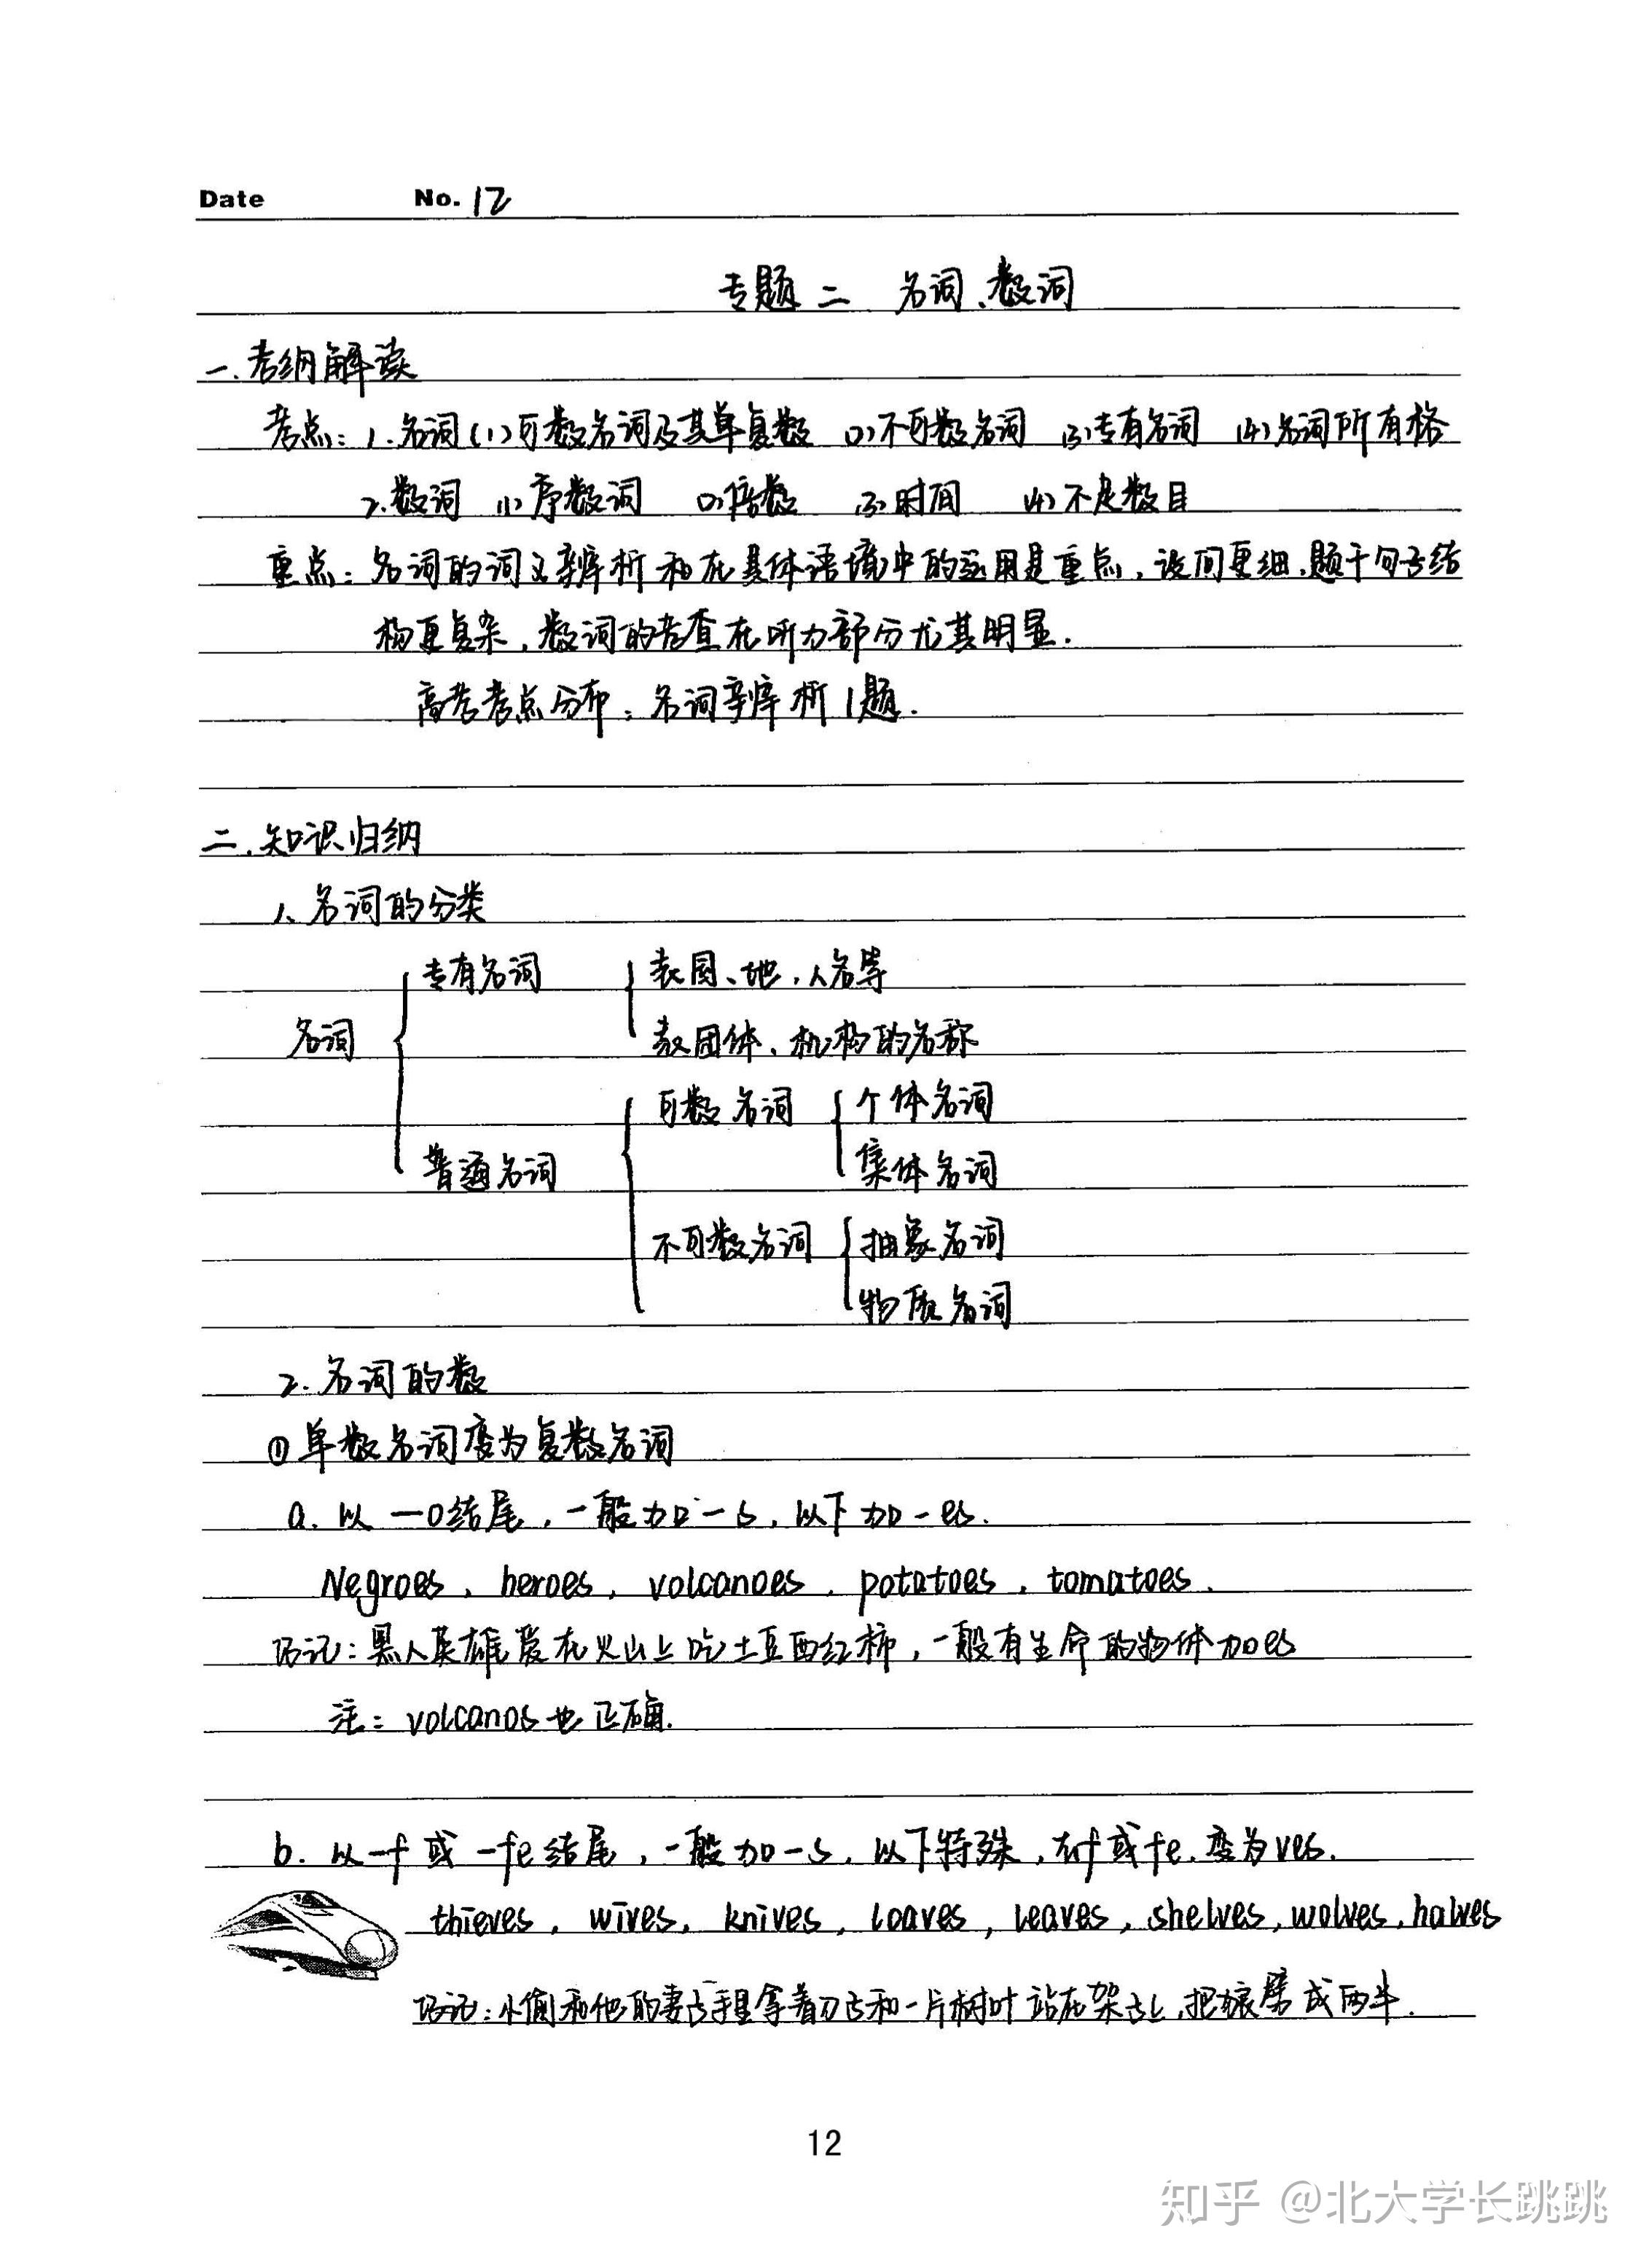 Date No. 12
专题二 名词、数词
一.考纲解读
考点：1.名词(1)可数名词及其单复数 (2)不可数名词 (3)专有名词 (4)名词所有格
2.数词 (1)序数词 (2)倍数 (3)时间 (4)不定数目
重点：名词的词义辨析和在具体语境中的运用是重点，设问更细.题干句子结
构更复杂，数词的考查在听力部分尤其明显.
高考考点分布：名词辨析1题.
二.知识归纳
1、名词的分类
专有名词 表国、地、人名等
名词 表团体、机构的名称
可数名词 个体名词
普通名词 集体名词
不可数名词 抽象名词
物质名词
2.名词的数
①单数名词变为复数名词
a. 以-o结尾，一般加-s，以下加-es.
Negroes, heroes, volcanoes, potatoes, tomatoes.
巧记：黑人英雄爱在火山上吃土豆西红柿，一般有生命的物体加es
注：volcanos也正确.
b. 以-f或-fe结尾，一般加-s，以下特殊，有f或fe.变为ves.
thieves, wives, knives, loaves, leaves, shelves, wolves, halves
巧记：小偷和他的妻子手里拿着刀子和一片树叶站在架子上，把狼劈成两半.
12
知乎 @北大学长跳跳